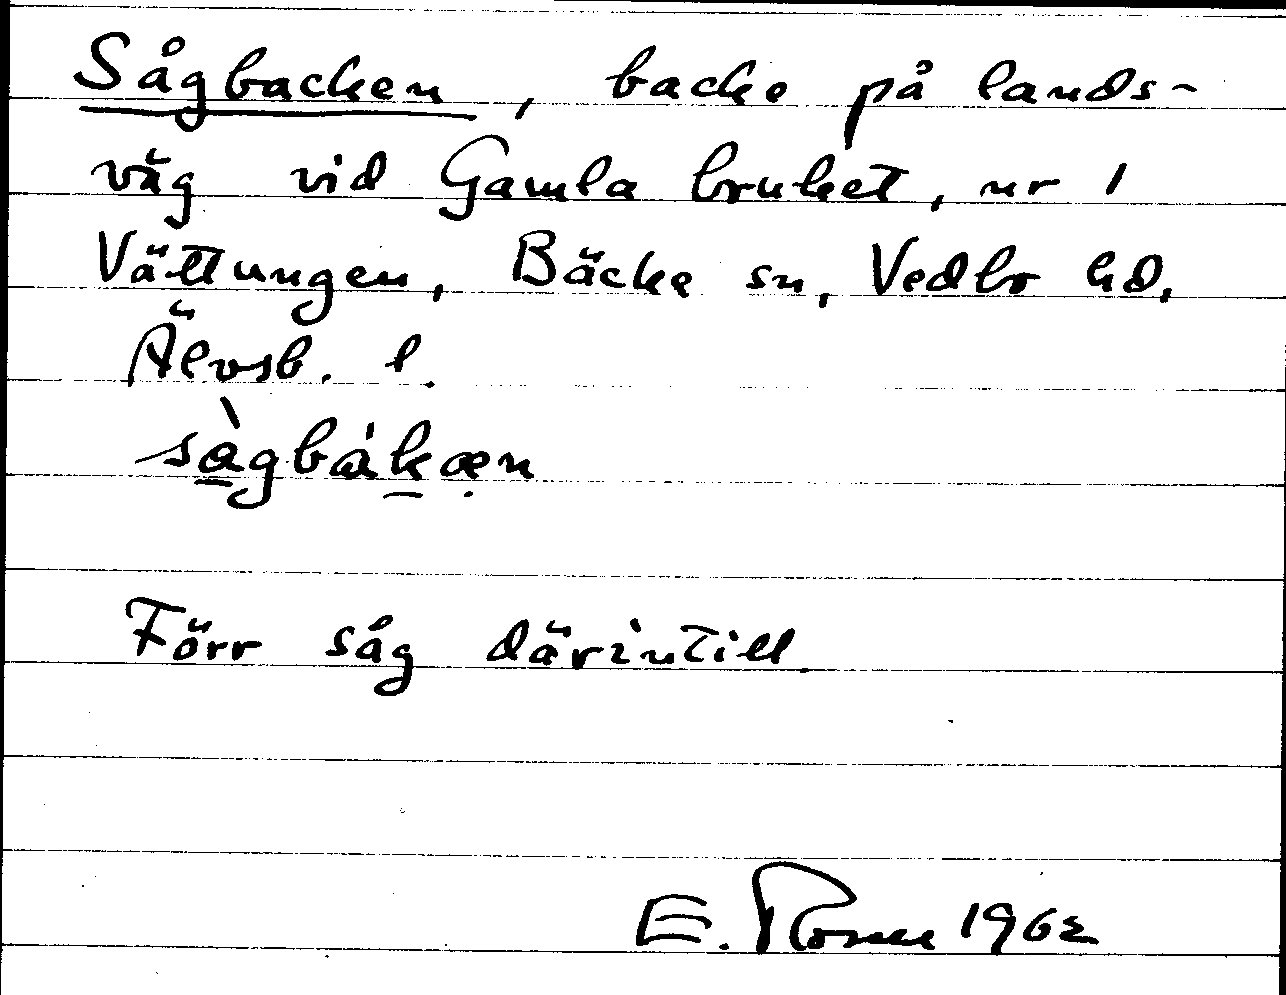 Sågbacken, backe på lands-
väg vid Gamla bruket, nr 1
Vättungen, Bäcke sn, Vedbo hd,
Älvsb. l.
sàgbákæn
Förr såg därintill.
E. 1962